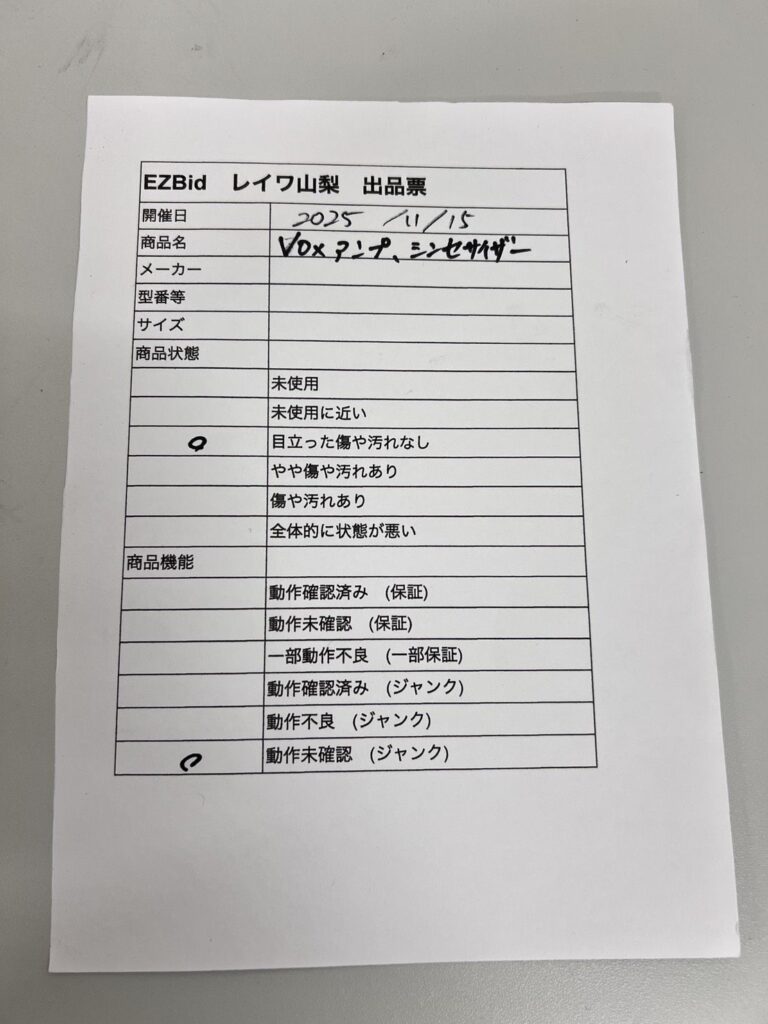 EZBid レイワ山梨 出品票
開催日 2025 /11/15
商品名 VOXアンプ、シンセサイザー
メーカー
型番等
サイズ
商品状態
未使用
未使用に近い
○ 目立った傷や汚れなし
やや傷や汚れあり
傷や汚れあり
全体的に状態が悪い
商品機能
動作確認済み (保証)
動作未確認 (保証)
一部動作不良 (一部保証)
動作確認済み (ジャンク)
動作不良 (ジャンク)
○ 動作未確認 (ジャンク)